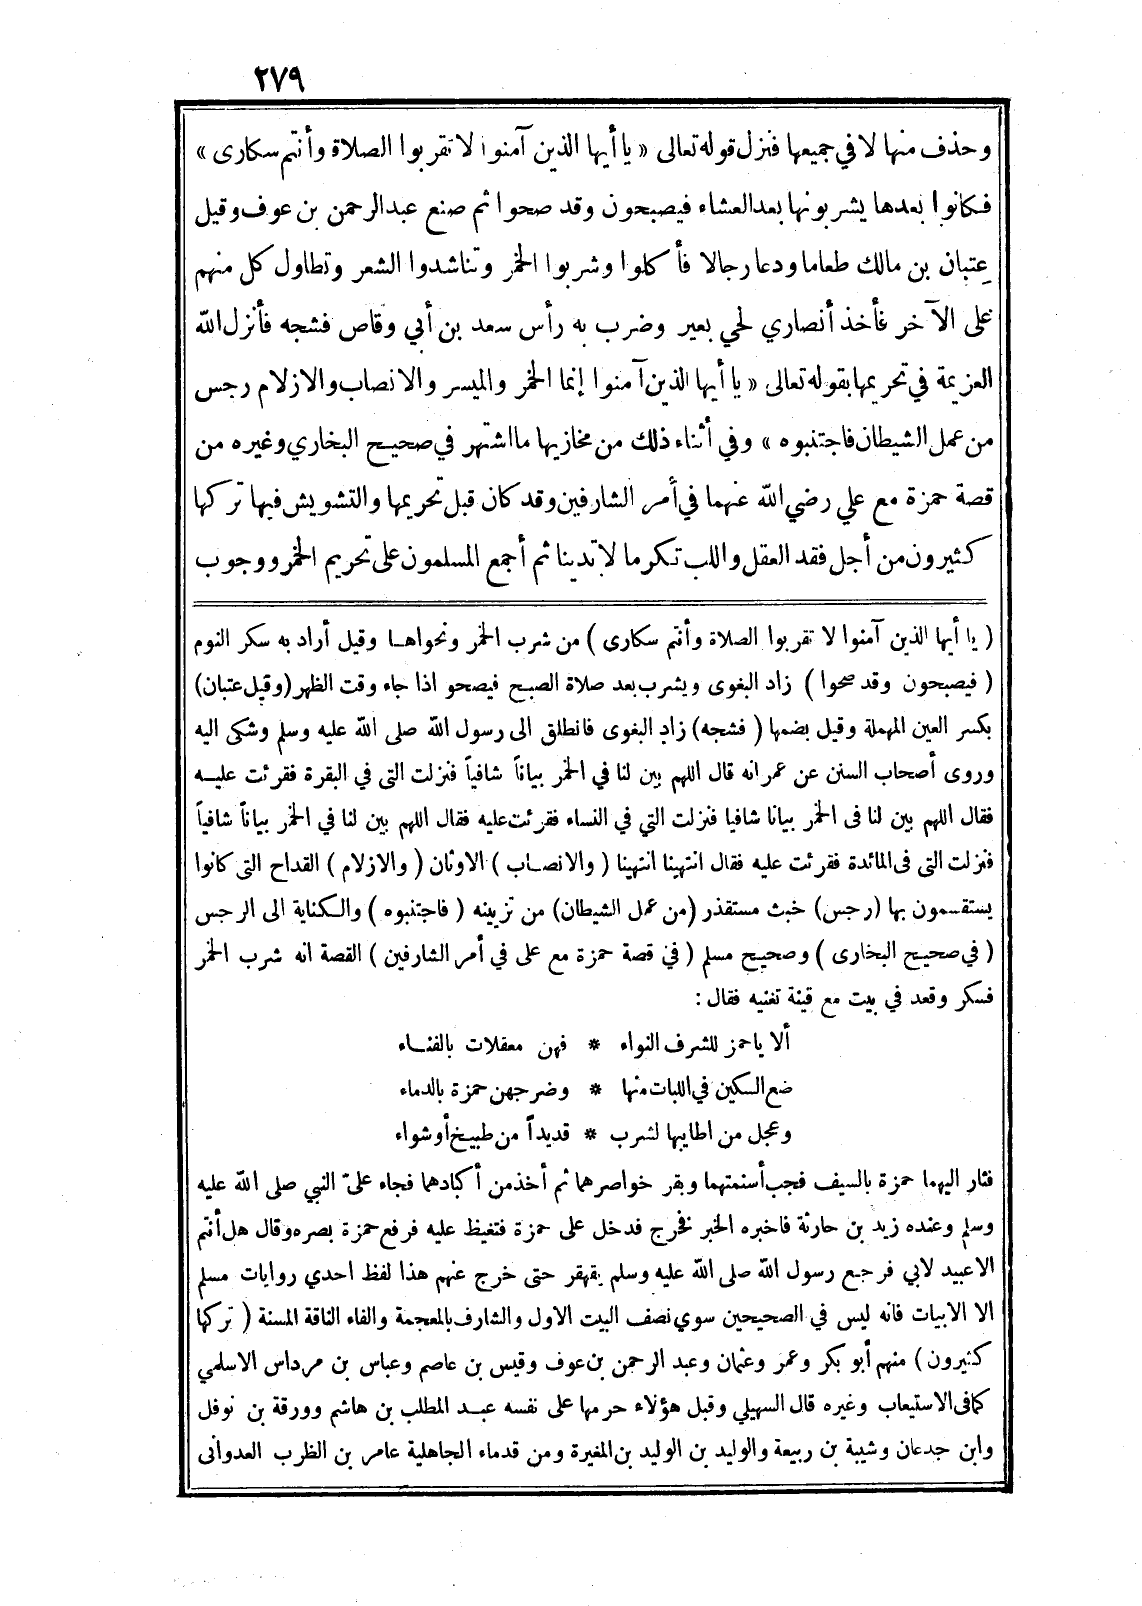 ٢٧٩
وحذف منها لا في جميعها فنزل قوله تعالى « يا أيها الذين آمنوا لا تقربوا الصلاة وأنتم سكارى »
فكانوا بعدها يشربونها بعد العشاء فيصبحون وقد صحوا ثم صنع عبد الرحمن بن عوف وقيل
عِتبان بن مالك طعاما ودعا رجالا فأكلوا وشربوا الخمر وتناشدوا الشعر وتطاول كل منهم
على الآخر فأخذ أنصاري لحي بعير وضرب به رأس سعد بن أبي وقاص فشجه فأنزل الله
العزيمة في تحريمها بقوله تعالى « يا أيها الذين آمنوا إنما الخمر والميسر والانصاب والازلام رجس
من عمل الشيطان فاجتنبوه » وفي أثناء ذلك من مخازيها ما اشتهر في صحيح البخاري وغيره من
قصة حمزة مع علي رضي الله عنهما في أمر الشارفين وقد كان قبل تحريمها والتشويش فيها تركها
كثيرون من أجل فقد العقل واللب تكرما لا تدينا ثم أجمع المسلمون على تحريم الخمر ووجوب
( يا أيها الذين آمنوا لا تقربوا الصلاة وأنتم سكارى ) من شرب الخمر ونحوها وقيل أراد به سكر النوم
( فيصبحون وقد صحوا ) زاد البغوى ويشرب بعد صلاة الصبح فيصحو اذا جاء وقت الظهر (وقيل عتبان)
بكسر العين المهملة وقيل بضمها ( فشجه) زاد البغوى فانطلق الى رسول الله صلى الله عليه وسلم وشكى اليه
وروى أصحاب السنن عن عمر انه قال اللهم بين لنا في الخمر بياناً شافياً فنزلت التى في البقرة فقرئت عليه
فقال اللهم بين لنا فى الخمر بيانا شافيا فنزلت التي في النساء فقرئت عليه فقال اللهم بين لنا في الخمر بياناً شافياً
فنزلت التى فى المائدة فقرئت عليه فقال انتهينا انتهينا ( والانصاب ) الاوثان ( والازلام ) القداح التى كانوا
يستقسمون بها (رجس) خبث مستقذر (من عمل الشيطان) من تزيينه ( فاجتنبوه ) والكناية الى الرجس
( في صحيح البخارى ) وصحيح مسلم ( في قصة حمزة مع على في أمر الشارفين ) القصة انه شرب الخمر
فسكر وقعد في بيت مع قينة تغنيه فقال :
ألا يا حمز للشرف النواء * فهن معقلات بالفناء
ضع السكين في اللبات منها * وضرجهن حمزة بالدماء
وعجل من اطايبها لشرب * قديداً من طبيخ أو شواء
فثار اليهما حمزة بالسيف فجب أسنمتهما وبقر خواصرهما ثم أخذ من أكبادهما فجاء علىّ النبي صلى الله عليه
وسلم وعنده زيد بن حارثة فاخبره الخبر فخرج فدخل على حمزة فتغيظ عليه فرفع حمزة بصره وقال هل أنتم
الا عبيد لابي فرجع رسول الله صلى الله عليه وسلم يقهقر حتى خرج عنهم هذا لفظ احدي روايات مسلم
الا الابيات فانه ليس في الصحيحين سوي نصف البيت الاول والشارف بالمعجمة والفاء الناقة المسنة ( تركها
كثيرون ) منهم أبو بكر وعمر وعثمان وعبد الرحمن بن عوف وقيس بن عاصم وعباس بن مرداس الاسلمي
كما فى الاستيعاب وغيره قال السهيلي وقبل هؤلاء حرمها على نفسه عبد المطلب بن هاشم وورقة بن نوفل
وابن جدعان وشيبة بن ربيعة والوليد بن الوليد بن المغيرة ومن قدماء الجاهلية عامر بن الظرب العدوانى